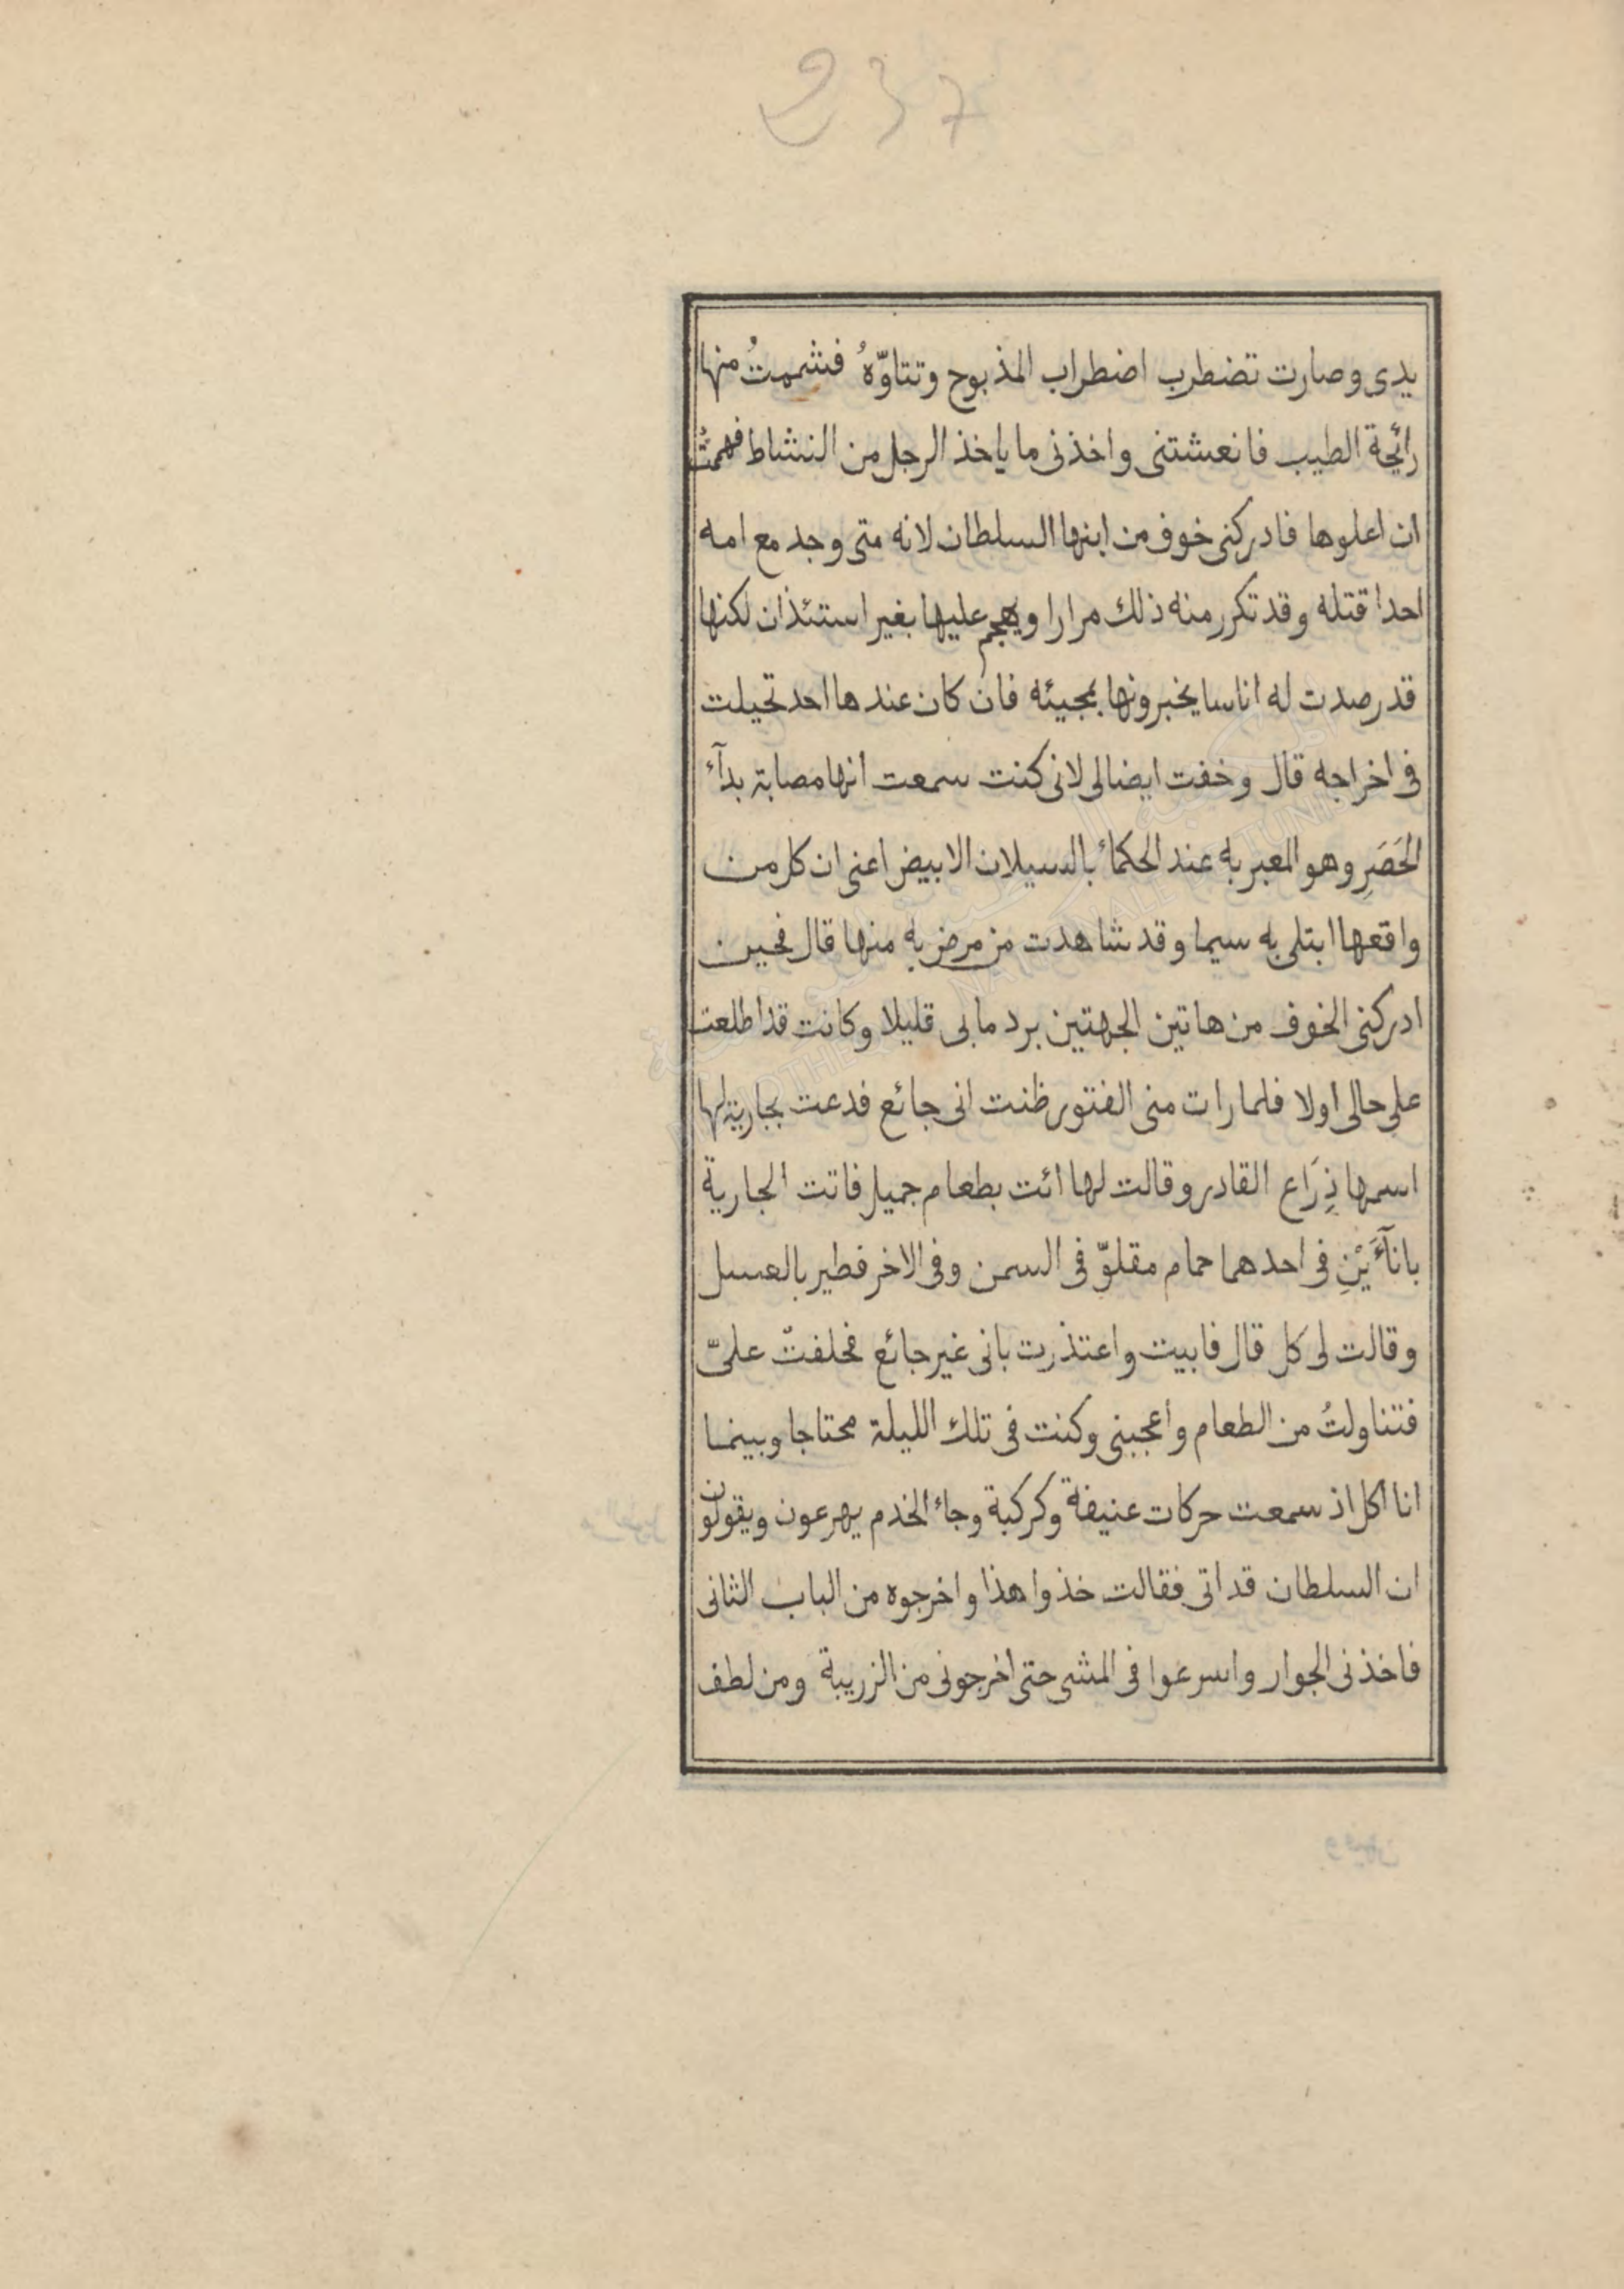 237
يدى وصارت تضطرب اضطراب المذبوح وتتاوّهُ فشممتُ منها
رائحة الطيب فانعشتنى واخذنى ما ياخذ الرجل من النشاط فهممتُ
ان اعلوها فادركنى خوف من ابنها السلطان لانه متى وجد مع امه
احدا قتله وقد تكرر منه ذلك مرارا ويهجم عليها بغير استئذان لكنها
قد رصدت له اناسا يخبرونها بمجيئه فان كان عندها احد تحيلت
فى اخراجه قال وخفت ايضا لى لانى كنت سمعت انها مصابة بدآء
الحَصَرِ وهو المعبر به عند الحكماء بالسيلان الابيض اعنى ان كل من
واقعها ابتلى به سيما وقد شاهدت من مرض به منها قال فحين
ادركنى الخوف من هاتين الجهتين برد ما بى قليلا وكانت قد اطلعت
على حالى اولا فلما رات منى الفتور ظنت انى جائع فدعت بجارية لها
اسمها ذِرَاع القادر وقالت لها ائت بطعام جميل فاتت الجارية
بانآءَيْنِ فى احدهما حمام مقلوّ فى السمن وفى الاخر فطير بالعسل
وقالت لى كل قال فابيت واعتذرت بانى غير جائع فحلفتْ علىّ
فتناولتُ من الطعام واعجبنى وكنت فى تلك الليلة محتاجا وبينما
انا اكل اذ سمعت حركات عنيفة وكركبة وجاء الخدم يهرعون ويقولون
ان السلطان قد اتى فقالت خذوا هذا واخرجوه من الباب الثانى
فاخذنى الجوار واسرعوا فى المشى حتى اخرجونى من الزريبة ومن لطف